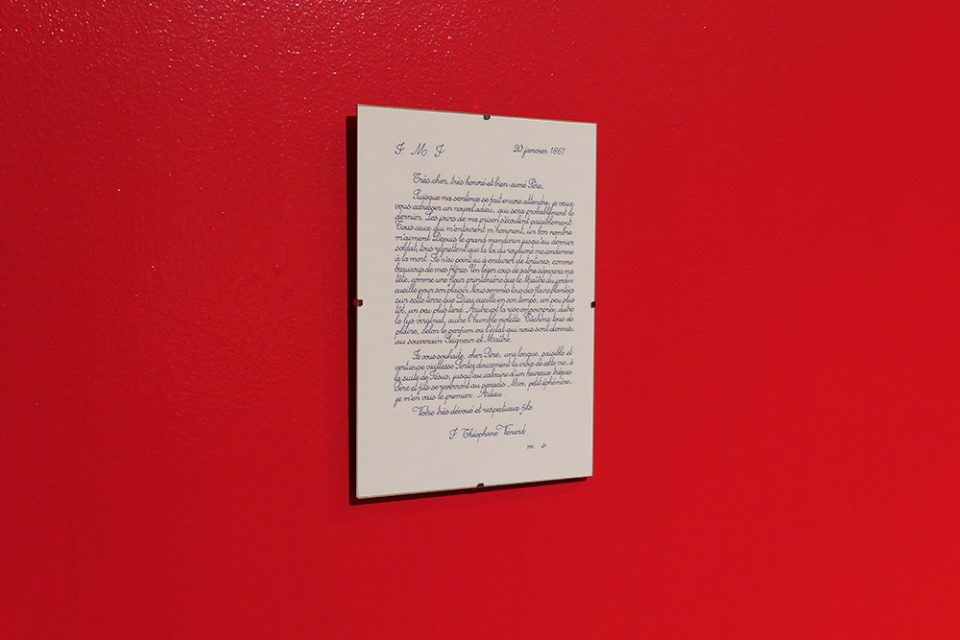 J M J 20 janvier 1861
Très cher, très honoré et bien-aimé Père,
Puisque ma sentence se fait encore attendre, je veux
vous adresser un nouvel adieu, qui sera probablement le
dernier. Les jours de ma prison s'écoulent paisiblement.
Tous ceux qui m'entourent m'honorent, un bon nombre
m'aiment. Depuis le grand mandarin jusqu'au dernier
soldat, tous regrettent que la loi du royaume me condamne
à la mort. Je n'ai point eu à endurer de tortures, comme
beaucoup de mes frères. Un léger coup de sabre séparera ma
tête, comme une fleur printanière que le Maître du jardin
cueille pour son plaisir. Nous sommes tous des fleurs plantées
sur cette terre que Dieu cueille en son temps, un peu plus
tôt, un peu plus tard. Autre est la rose empourprée, autre
le lys virginal, autre l'humble violette. Tâchons tous de
plaire, selon le parfum ou l'éclat qui nous sont donnés,
au souverain Seigneur et Maître.
Je vous souhaite, cher Père, une longue, paisible et
vertueuse vieillesse. Portez doucement la croix de cette vie, à
la suite de Jésus, jusqu'au calvaire d'un heureux trépas.
Père et fils se reverront au paradis. Moi, petit éphémère,
je m'en vais le premier. Adieu.
Votre très dévoué et respectueux fils
J Théophane Vénard